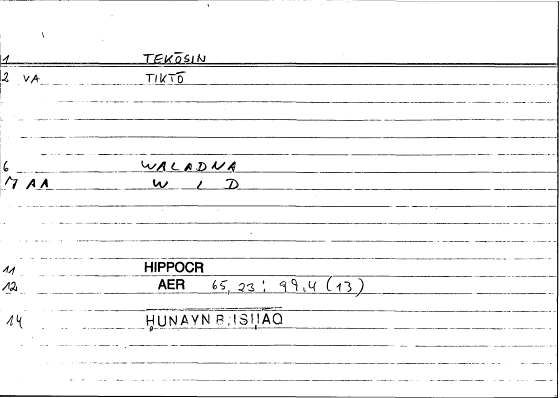 1 TEKŌSIN
2 VA TIKTŌ
6 WALADNA
7 AA W L D
11 HIPPOCR
12 AER 65,23; 99,4 (13)
14 ḤUNAYN B. ISḤAQ